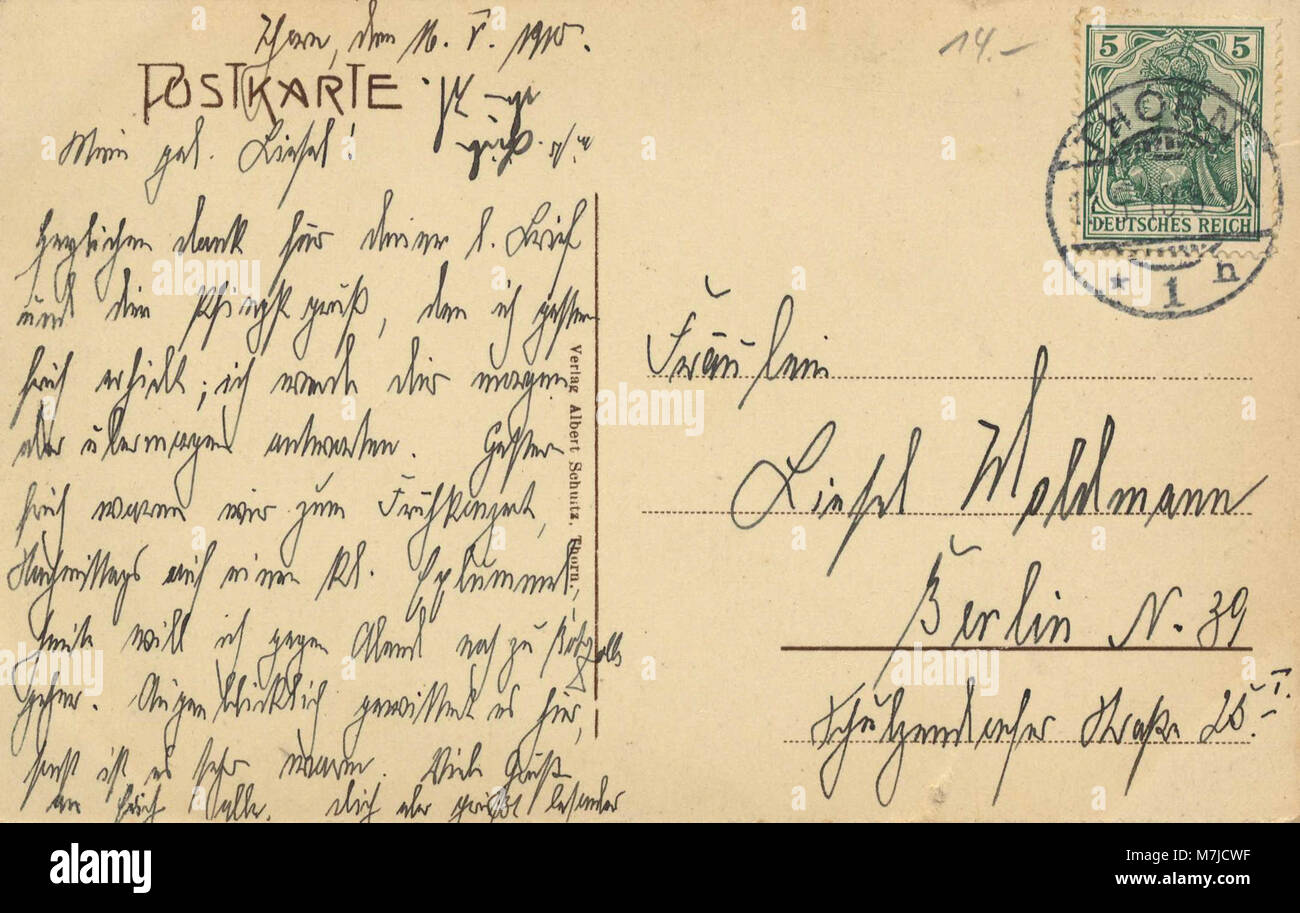 Thorn, den 16. V. 1910.
POSTKARTE
Mein gel. Liesel!
Herzlichen dank für deinen l. Brief
und den Pfingstgruß, den ich gestern
früh erhielt; ich werde dir morgen
oder übermorgen antworten. Gestern
früh waren wir zum Frühkonzert,
Nachmittags auf einen kl.
heute will ich gegen Abend noch zu
gehen. Augenblicklich gewittert es hier,
sonst ist es sehr warm. Viele Grüße
an Euch alle. Dich aber grüßt besonder
Verlag Albert Schultz, Thorn.
14.-
5 5
DEUTSCHES REICH
THORN
* 1 h
Fräulein
Liesel Woldmann
Berlin N. 39
Schulzendorfer Straße 25 I.
alamy
M7JCWF
www.alamy.com